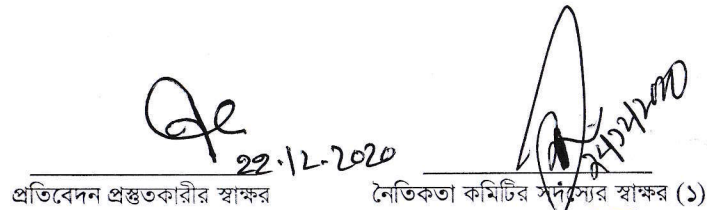 22.12.2020
প্রতিবেদন প্রস্তুতকারীর স্বাক্ষর
নৈতিকতা কমিটির সদস্যের স্বাক্ষর (১)